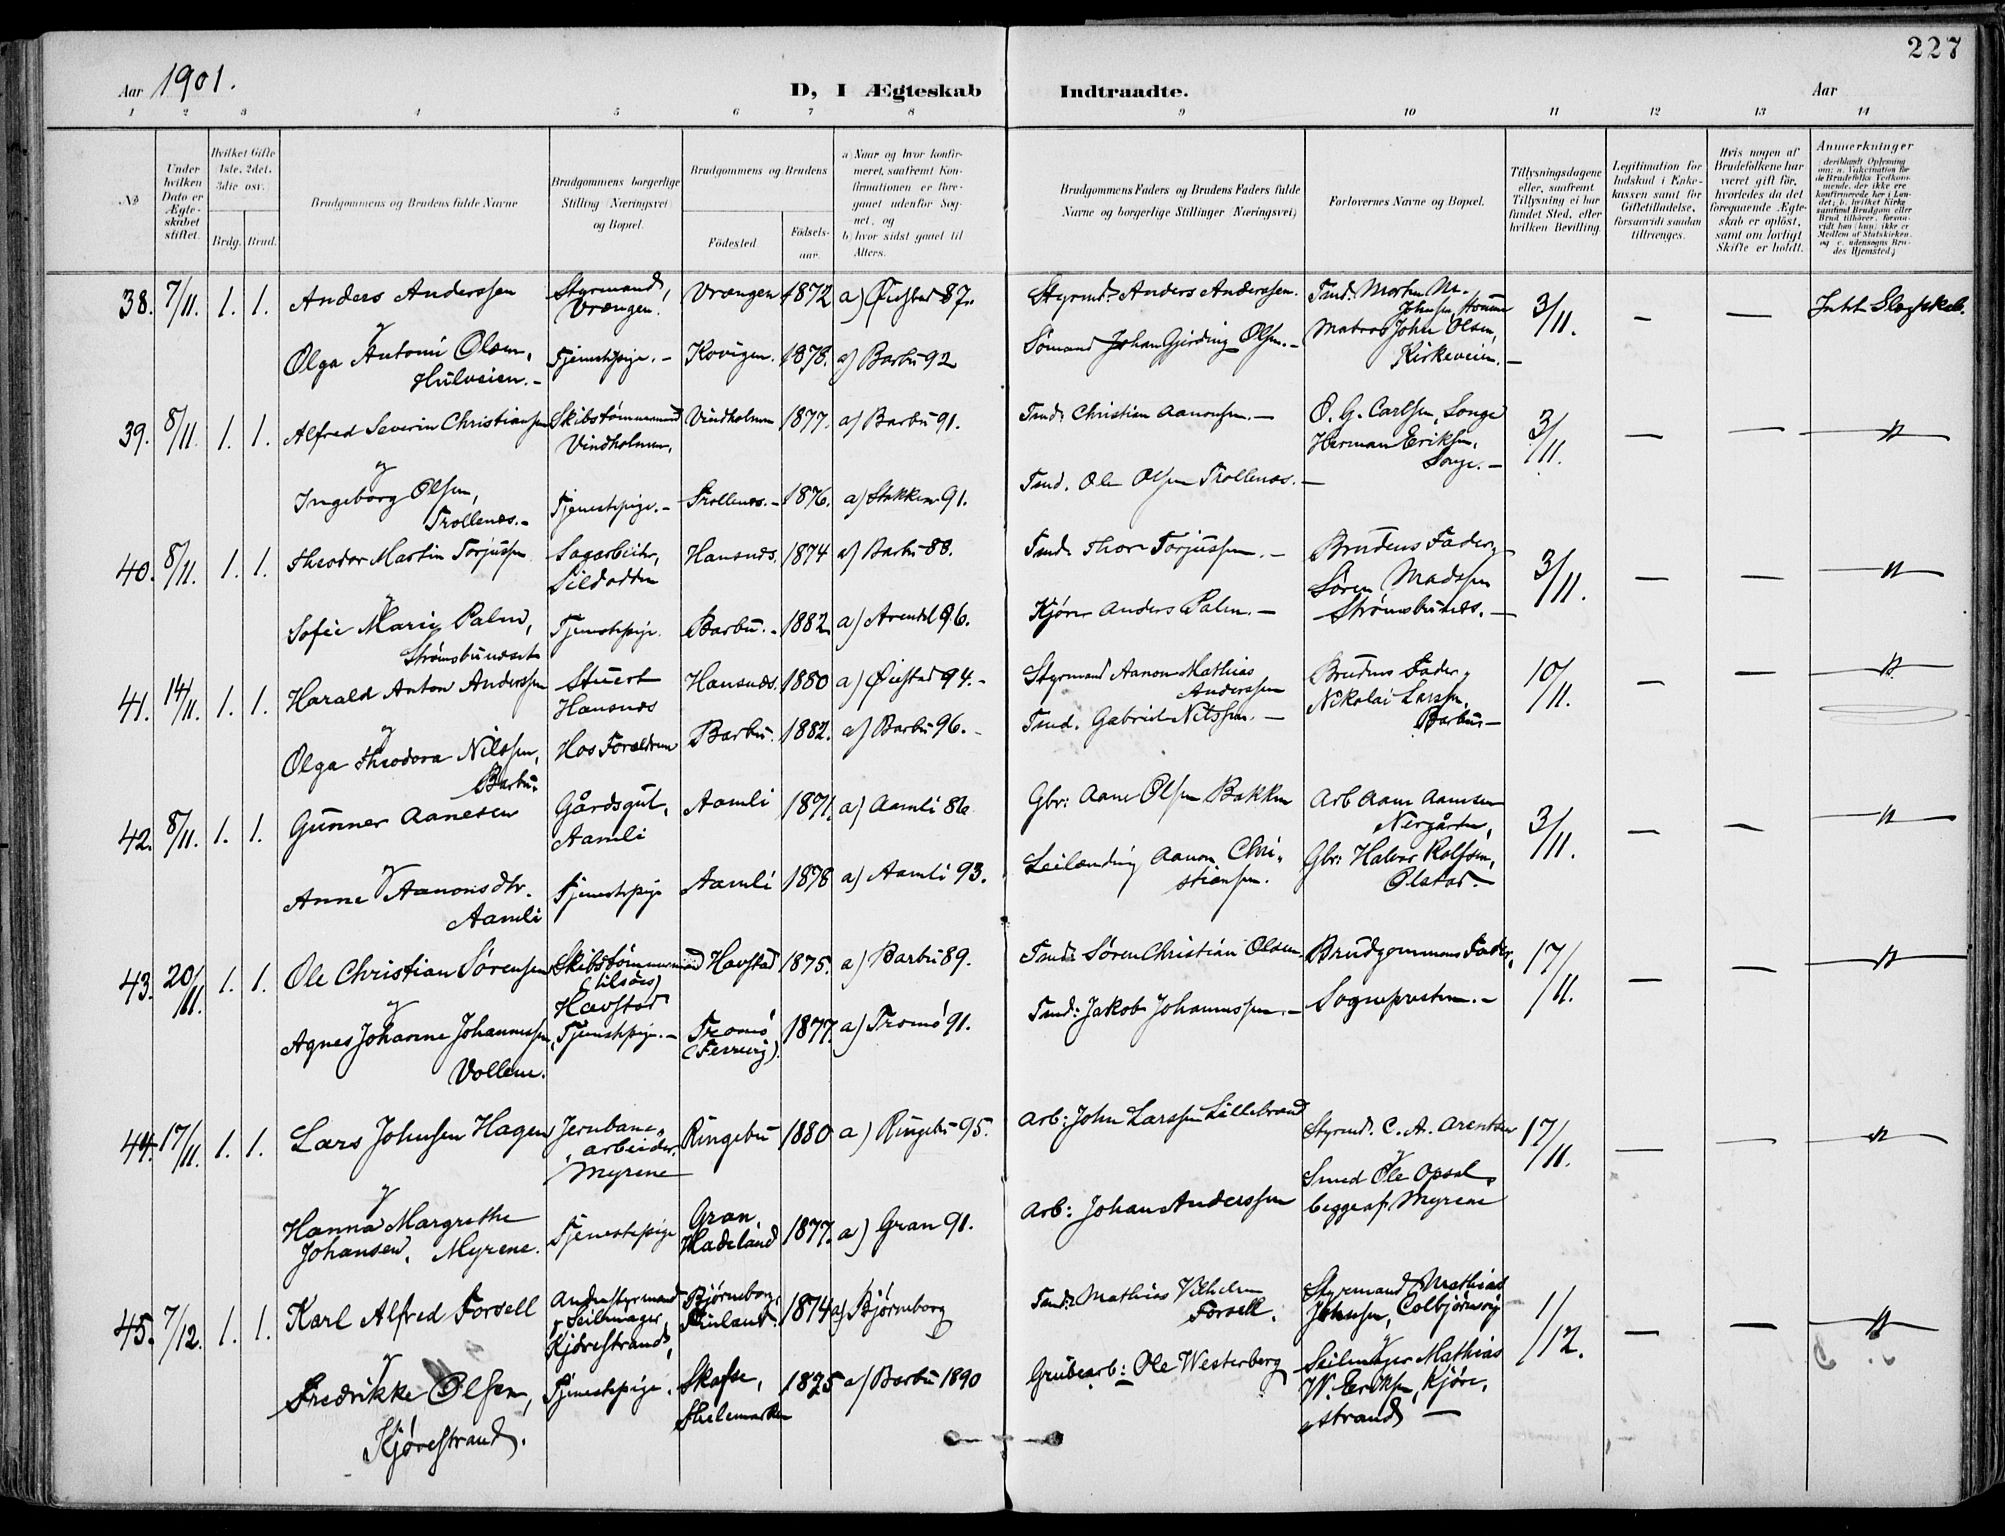 227
Aar 1901.
D, I Ægteskab Indtraadte.
Aar
1 2 3 4 5 6 7 8 9 10 11 12 13 14
No
Under hvilken Dato er Ægteskabet stiftet.
Hvilket Gifte 1ste, 2det, 3die osv.
Brdg. Brud.
Brudgommens og Brudens fulde Navne
Brudgommens borgerlige Stilling (Næringsvei) og Bopæl.
Brudgommens og Brudens
Fødested Fødselsaar.
a) Naar og hvor konfirmeret, saafremt Konfirmationen er foregaaet udenfor Sognet, og
b) hvor sidst gaaet til Alters.
Brudgommens Faders og Brudens Faders fulde Navne og borgerlige Stillinger (Næringsvei)
Forlovernes Navne og Bopæl.
Tillysningsdagene eller, saafremt Tillysning ei har fundet Sted, efter hvilken Bevilling.
Legitimation for Indskud i Enkekassen samt for Giftetilladelse, forsaavidt saadan tiltrænges.
Hvis nogen af Brudefolkene har været gift før, hvorledes da det foregaaende Ægteskab er opløst, samt om lovligt Skifte er holdt.
Anmærkninger
38. 7/11. 1. 1. Anders Anderssen Styrmand, Vrængen. Vrængen 1872 a) Øiestad 87. Styrmd. Anders Anderssen. Tmd. Morten M. Johnsen 3/11. — — Intet Slægtskab.
Olga Antoni Olsen, Hulveien. Tjenestepige. Kovigen. 1878. a) Barbu 92 Sømand Johan Gjerding Olsen. Matros John Olsen, Kirkeveien.
39. 8/11. 1. 1. Alfred Severin Christiansen Skibstømmermand Vindholmen. Vindholmen 1877. a) Barbu 91. Tmd. Christian Aanonsen. O. G. Carlsen, Songe 3/11. — — "
Ingeborg Olsen, Trollenæs. Tjenestepige. Trollenæs. 1876. a) Stokken 91. Tmd. Ole Olsen Trollenæs. Herman Eriksen, Songe.
40. 8/11. 1. 1. Theodor Martin Torjussen Sagarbeider, Sildodden Hansnæs. 1874 a) Barbu 88. Tmd. Thor Torjussen. Brudens Fader 3/11. — — "
Sofie Marie Palm, Strømsbunæset Tjenestepige. Barbu. 1882 a) Arendal 96. Kjører Anders Palm. Søren Madssen Strømsbunæs.
41. 14/11. 1. 1. Harald Anton Anderssen Stuert Hansnæs Hansnæs. 1880 a) Øiestad 94. Styrmand Aanon Mathias Anderssen Brudens Fader 10/11. — — "
Olga Theodora Nilssen, Barbu. Hos Forældrene Barbu. 1882. a) Barbu 96. Tmd. Gabriel Nilssen. Nikolai Larssen, Barbu
42. 8/11. 1. 1. Gunner Aanesen Gårdsgut, Aamli Aamli 1871. a) Aamli 86 Gbr: Aane Olsen Bakken Arb Aane Aanesen Nergården, 3/11. — — "
Anne Aanonsdtr. Aamli Tjenestepige Aamli 1878 a) Aamli 93. Leilænding Aanon Christiansen. Gbr: Halvor Rolfsen, Ølstad.
43. 20/11. 1. 1. Ole Christian Sørensen Skibstømmermand (tilsøes) Havstad Havstad 1875. a) Barbu 89. Tmd: Søren Christian Olsen Brudgommens Fader, 17/11. — — "
Agnes Johanne Johannessen, Vollene. Tjenestepige. Tromø (Færvig). 1877. a) Tromø 91. Tmd: Jakob Johannessen. Sognepresten.
44. 17/11. 1. 1. Lars Johnsen Hagen Jernbanearbeider. Myrene Ringebu 1880 a) Ringebu 95. Arb: John Larssen Lillebrænd Styrmd. C. A. Arentsen 17/11. — — "
Hanna Margrethe Johansen, Myrene. Tjenestepige Gran Hadeland 1877. a) Gran 91. Arb: Johan Anderssen Smed Ole Opsal, begge af Myrene
45. 7/12. 1. 1. Karl Alfred Forsell Andenstyrmand & Seilmager, Kjørrestrand, Bjørneborg, Finland. 1874 a) Bjørneborg Tmd: Mathias Vilhelm Forsell. Styrmand Mathias Johnsen, Colbjørnsvig 1/12. — — "
Fredrikke Olsen, Kjørrestrand. Tjenestepige. Skafse, Thelemarken 1875 a) Barbu 1890 Grubearb: Ole Westerberg Seilmager Mathias W. Eriksen, Kjørrestrand